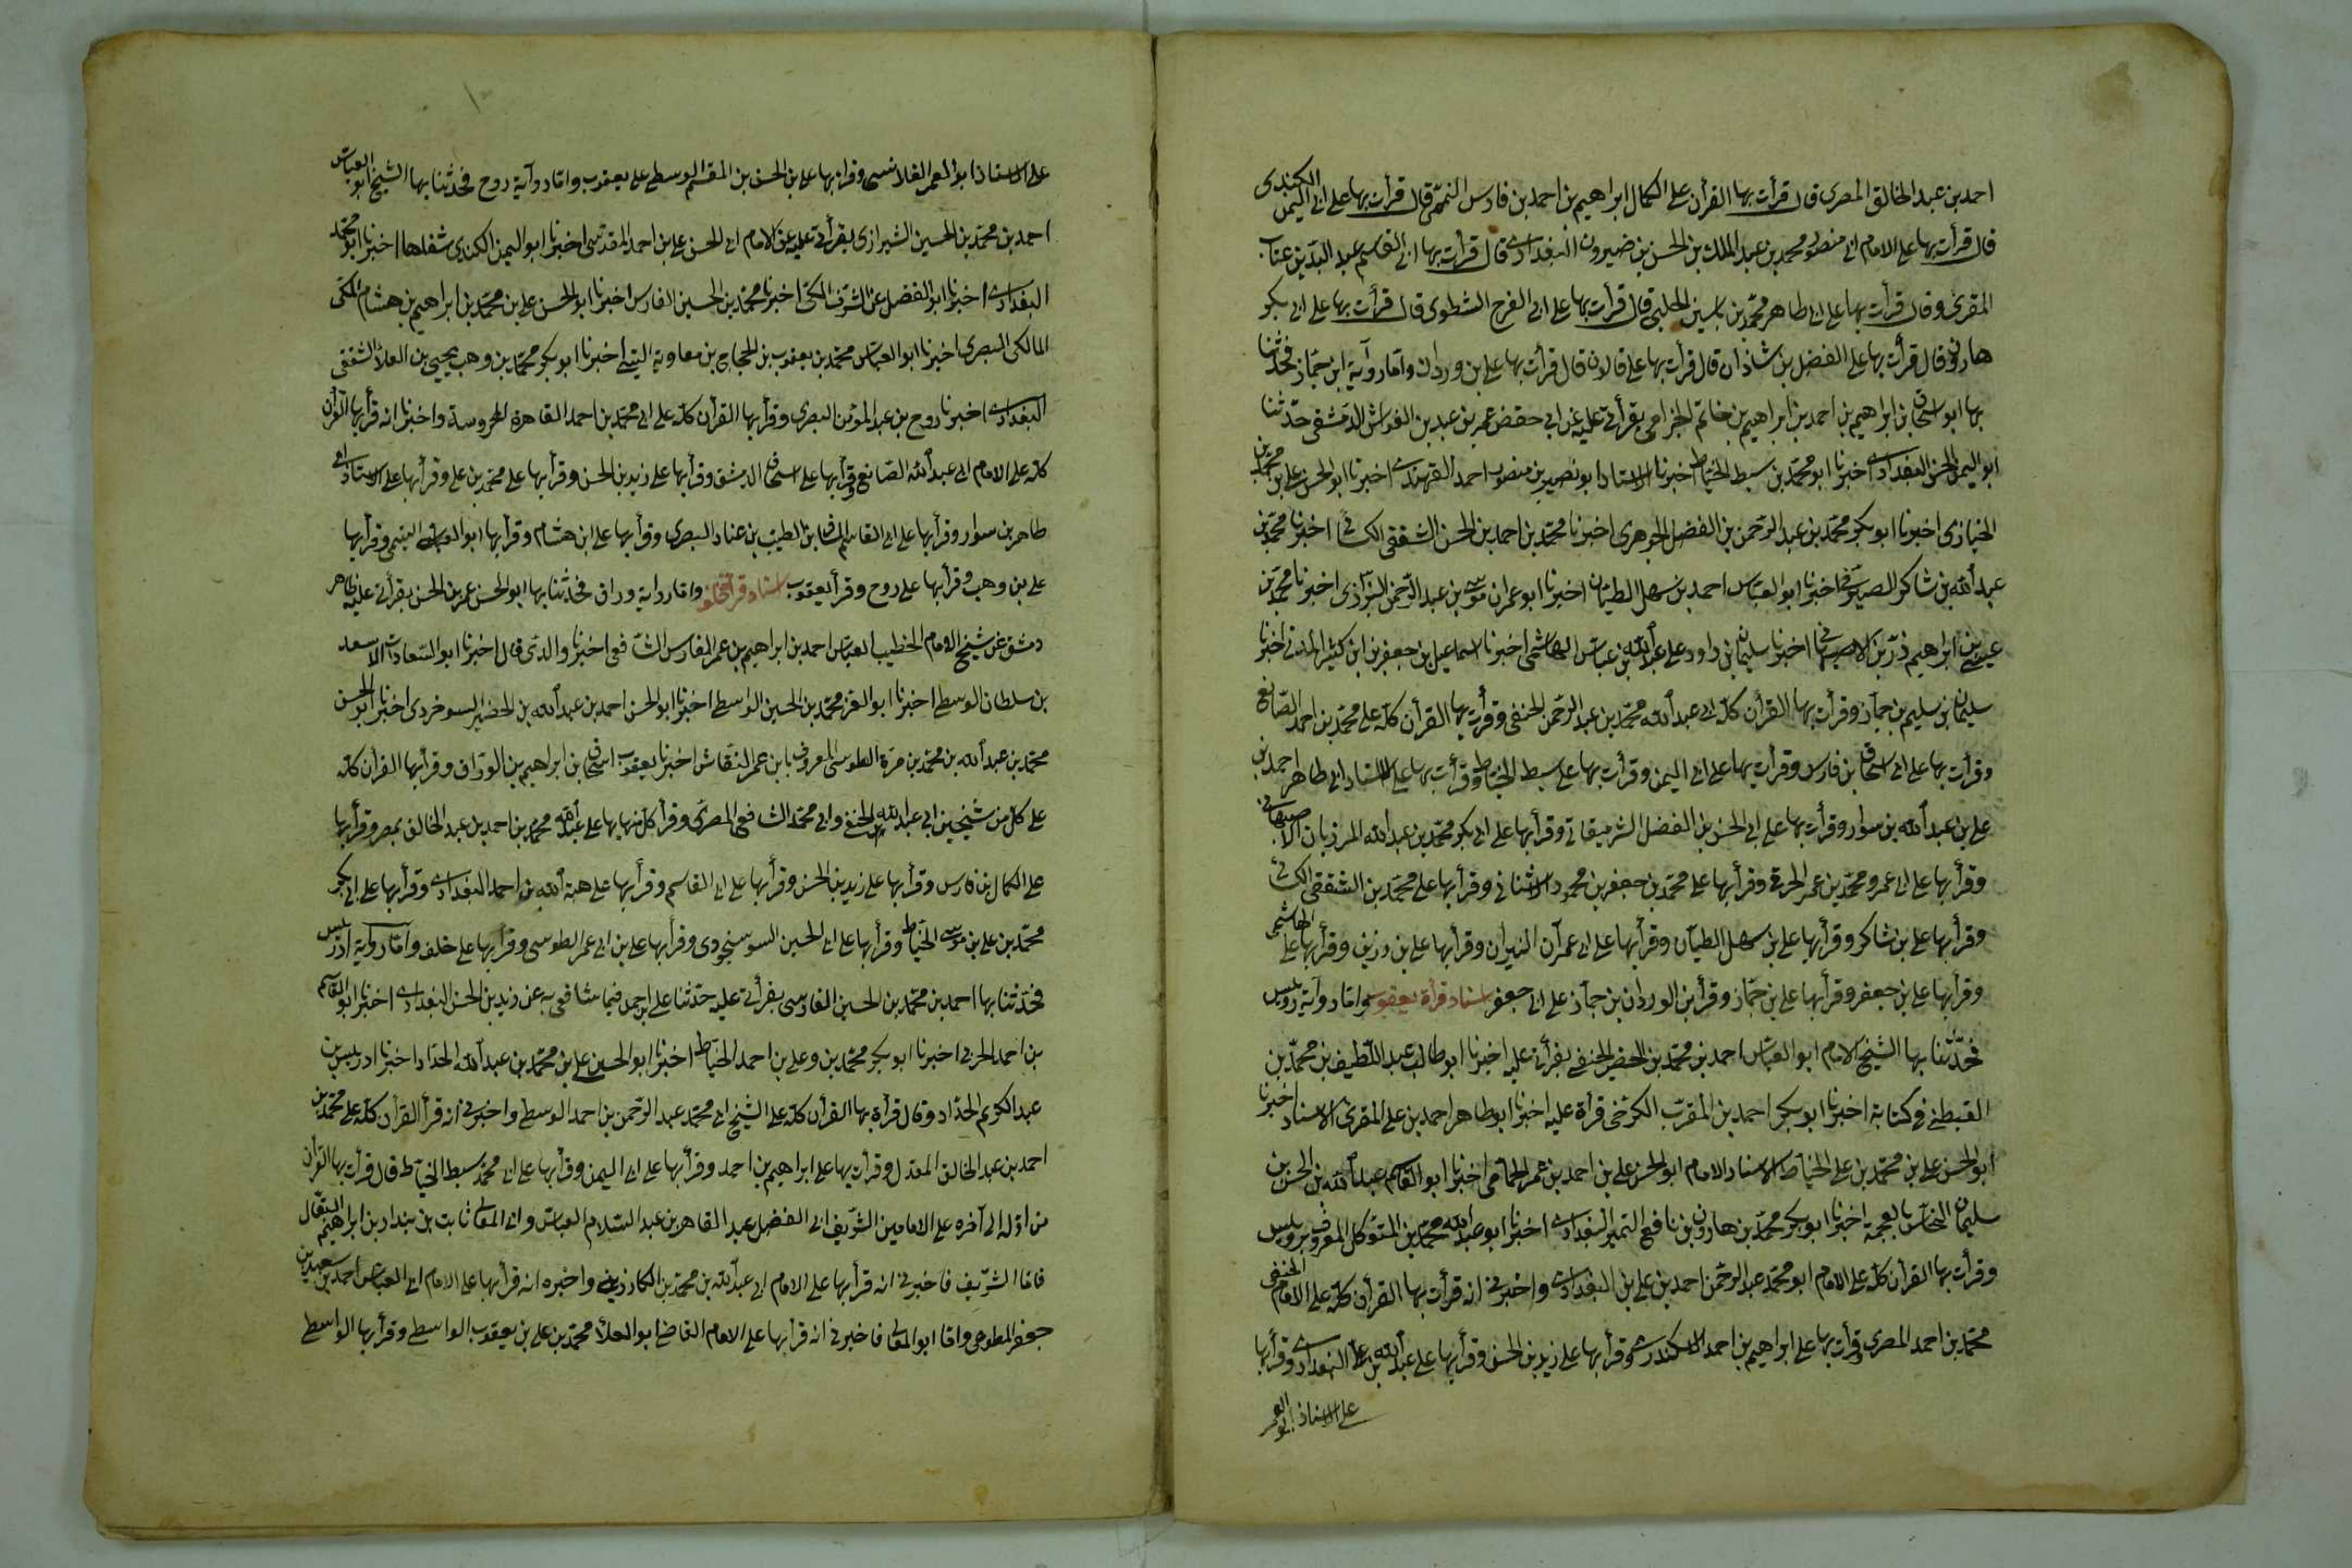 احمد بن عبد الخالق المصرى قال قرأت بها القرآن على الكمال ابراهيم بن احمد بن فارس التميمى قال قرأت بها على ابى اليمن الكندى
قال قرأت بها على الامام ابى منصور محمد بن عبد الملك بن الحسن بن خيرون البغدادى قال قرأت بها ابى القاسم عبد السيد بن عتاب
المقرئ وقال قرأت بها على ابى طاهر محمد بن ياسين الحلبى قال قرأت بها على ابى الفرج الشطوى قال قرأت بها على ابى بكر
هارون قال قرأت بها على الفضل بن شاذان قال قرأت بها على قالون قال قرأت بها على بن وردان واما رواية ابن جماز فحدثنا
بها ابو اسحاق بن ابراهيم بن احمد بن ابراهيم بن حاتم الجزامى بقرأتى عليه عن ابى حفص عمر بن عبد بن القواس الدمشقى حدثنا
ابو اليمن الحسن البغدادى اخبرنا ابو محمد بن سبط الخياط اخبرنا الاستاد ابو نصير بن منصور احمد القهندى اخبرنا ابو الحسن على بن محمد بن
الخبازى اخبرنا ابو بكر محمد بن عبد الرحمن بن الفضل الجوهرى اخبرنا محمد بن احمد بن الحسن الشقفى الكسائى اخبرنا محمد بن
عبد الله بن شاكر الصيرفى اخبرنا ابو العباس احمد بن سهل الطيان اخبرنا ابو عمران موسى بن عبد الرحمن البزازى اخبرنا محمد بن
عيسى بن ابراهيم بن رزين الاصبهانى اخبرنا سليمان بن داود على عبد الله بن عباس الهاشمى اخبرنا اسماعيل بن جعفر بن ابن كثير المدنى اخبرنا
سليمان بن سليم بن جماز وقرأت بها القرآن كله ابى عبد الله محمد بن عبد الرحمن الحنفى وقرأت بها القرآن كله على محمد بن احمد الصائغ
وقرأت بها على ابى اسحاق بن فارس وقرأت بها على ابى اليمن وقرأت بها على سبط الخياط وقرأت بها على الاستاد ابى طاهر احمد بن
على بن عبد الله بن سوار وقرأت بها على ابى الحسن بن الفضل الشرمقانى وقرأ بها على ابى بكر محمد بن عبد الله المرزبان الاصبهانى
وقرأ بها على ابى عمرو محمد بن عمر الخرقى وقرأ بها على محمد بن جعفر بن محمود الاشنانى وقرأ بها على محمد بن الشقفى الكسائى
وقرأ بها على بن شاكر وقرأ بها على بن سهل الطيان وقرأ بها على ابى عمران البزان وقرأ بها على بن رزين وقرأ بها على الهاشمى
وقرأ بها على بن جعفر وقرأ بها على بن جماز وقرأ بن الوردان بن جماز على ابى جعفر اسناد قرأة يعقوب واما رواية رويس
فحدثنا بها الشيخ الامام ابو العباس احمد بن محمد بن الخضر الحنفى بقرأتى عليه اخبرنا ابو طالب عبد اللطيف بن محمد بن
القبطى فى كتابة اخبرنا ابو بكر احمد بن المقرب الكرخى قرأة عليه اخبرنا ابو طاهر احمد بن على المقرئ الاستاد اخبرنا
ابو الحسن على بن محمد بن على الخياط الاستاد الامام ابو الحسن على بن احمد بن عمر الحمامى اخبرنا ابو القاسم عبد الله بن الحسن بن
سليمان النخاس بالمعجمة اخبرنا ابو بكر محمد بن هارون بن نافع التمير البغدادى اخبرنا ابو عبد الله محمد بن المتوكل المعروف برويس
وقرأت بها القرآن كله على الامام ابو محمد عبد الرحمن احمد بن على بن البغدادى واخبرنى انه قرأت بها القرآن كله على الامام الحنفى
محمد بن احمد المصرى وقرأت بها على ابراهيم بن احمد الاسكندرى وقرأ بها على زيد بن الحسن وقرأ بها على عبد الله بن على البغدادى وقرأ بها
على الاستاذ ابو العز
على الاستاذ ابو المعر القلانسى وقرأ بها على بن الحسن بن القسم الوسطى على يعقوب واما رواية روح فحدثنا بها الشيخ ابو العباس
احمد بن محمد بن الحسين الشيرازى بقرأتى عليه عن الامام ابى الحسن على بن احمد المقدسى اخبرنا ابو اليمن الكندى شفاها اخبرنا ابو محمد
البغدادى اخبرنا ابو الفضل عز الشرف المكى اخبرنا محمد بن الحسين الفارس اخبرنا ابو الحسن على بن محمد بن ابراهيم بن هشام المكى
المالكى البصرى اخبرنا ابو العباس محمد بن يعقوب بن الحجاج بن معاوية التيمى اخبرنا ابو بكر محمد بن وهب يحيى بن العلا الشقفى
البغدادى اخبرنا روح بن عبد المؤمن البصرى وقرأ بها القرآن كله على ابى محمد بن احمد القاهرة المحروسة واخبرنا انه قرأ بها القرآن
كله على الامام ابى عبد الله الصائغ وقرأ بها على اسحاق الدمشق وقرأ بها على زيد بن الحسن وقرأ بها على محمد بن على وقرأ بها على الاستاد ابى
طاهر بن سوار وقرأ بها على ابى القاسم المسافر بن الطيب بن عناد البصرى وقرأ بها على ابن هشام وقرأ بها ابو العباس التيمى وقرأ بها
على بن وهب وقرأ بها على روح وقرأ يعقوب اسناد قرأة خلف واما رواية وراق فحدثنا بها ابو الحسن عمر بن الحسن بقرأتى عليه ظاهر
دمشق عن شيخ الامام الخطيب العباس احمد بن ابراهيم بن عمر الفارس الشافعى اخبرنا والدى قال اخبرنا ابو السعادات الاسعد
بن سلطان الوسطى اخبرنا ابو العز محمد بن الحسين الواسطى اخبرنا ابو الحسن احمد بن عبد الله بن الخضير السوخردى اخبرنا ابو الحسن
محمد بن عبد الله بن محمد بن مرة الطوسى المعروف بابن عمر النقاش اخبرنا يعقوب اسحاق بن ابراهيم بن الوراق وقرأ بها القرآن كله
على كل من شيخين ابى عبد الله الحنفى وابى محمد الشافعى المصرى وقرأ كل منهما بها على عبد الله محمد بن احمد بن عبد الخالق بمصر وقرأ بها
على الكمال بن فارس وقرأ بها على زيد بن الحسن وقرأ بها على ابى القاسم وقرأ بها على هبة الله بن احمد البغدادى وقرأ بها على ابى بكر
محمد بن على بن موسى الخياط وقرأ بها على ابى الحسين السوسنجردى وقرأ بها على بن ابى عمر الطوسى وقرأ بها على خلف واما رواية ادريس
فحدثنا بها احمد بن محمد بن الحسين الفارسى بقرأتى عليه حدثنا على احمد فيما شافهنى به عن زيد بن الحسن البغدادى اخبرنا ابو القاسم
بن احمد الحزبى اخبرنا ابو بكر محمد بن وعلى بن احمد الخياط اخبرنا ابو الحسين على بن محمد بن عبد الله الحذاء اخبرنا ادريس بن
عبد الكريم الحداد وقال قرأة بها القرآن كله على الشيخ ابى محمد عبد الرحمن بن احمد الوسطى واخبرنى انه قرأ القرآن كله على محمد بن
احمد بن عبد الخالق المعدل وقرأت بها على ابراهيم بن احمد وقرأ بها على ابى اليمن وقرأ بها على ابى محمد سبط الخياط قال قرأت بها القرآن
من اوله الى آخره على الامامين الشريف ابى الفضل عبد القاهر بن عبد السلام العباس وابى المعالى ثابت بن بندار بن ابراهيم البقال
فاما الشريف فاخبرنى انه قرأ بها على الامام ابى عبد الله بن محمد بن الكارزينى واخبره انه قرأ بها على الامام ابى العباس احمد بن سعيد بن
جعفر المطوعى واما ابو المعالى فاخبرنى انه قرأ بها على الامام القاضى ابو العلا محمد بن على بن يعقوب الواسطى وقرأ بها الواسطى